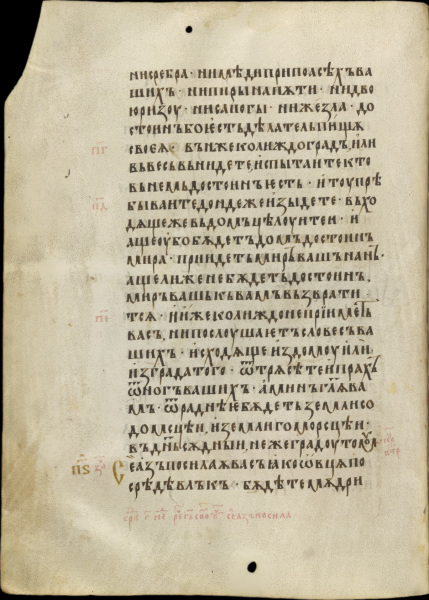 ни сребра · ни мѣди при поꙗсѣхъ ва
шихъ · ни пиры на пѫти · ни дво
ю ризоу · ни сапогы · ни жезла · до
стоинъ бо естъ дѣлатель пищѧ
своеѧ · въ нѫже колиждо градъ, или
въ весь вънидете, испытаите кто
въ неи достоинъ есть · и тоу прѣ
бываите дондеже изыдете · въхо
дѧще же въ домъ цѣлоуите и · и
аще оубо бѫдетъ домъ достоинъ
мира · придетъ миръ вашъ нань ·
аще ли же не бѫдетъ достоинъ,
миръ вашъ къ вамъ възврати
тсѧ · и иже колиждо не прииметь
васъ, ни послоушаетъ словесъ ва
шихъ · исходѧще из домоу или
из града того · ѿтрѧсѣте и прахъ
ѿ ногъ вашихъ · аминь глѧ ва
мъ · ѿраднѣе бѫдетъ земли со
домсцѣи, и земли гоморсцѣи ·
въ днь сѫдныи, неже градоу томоу
Се азъ посилаѧ васъ ꙗко ѡвцѧ по
срѣдѣ влъкъ · бѫдѣте мѫдри
пг
пд
пе
пѕ